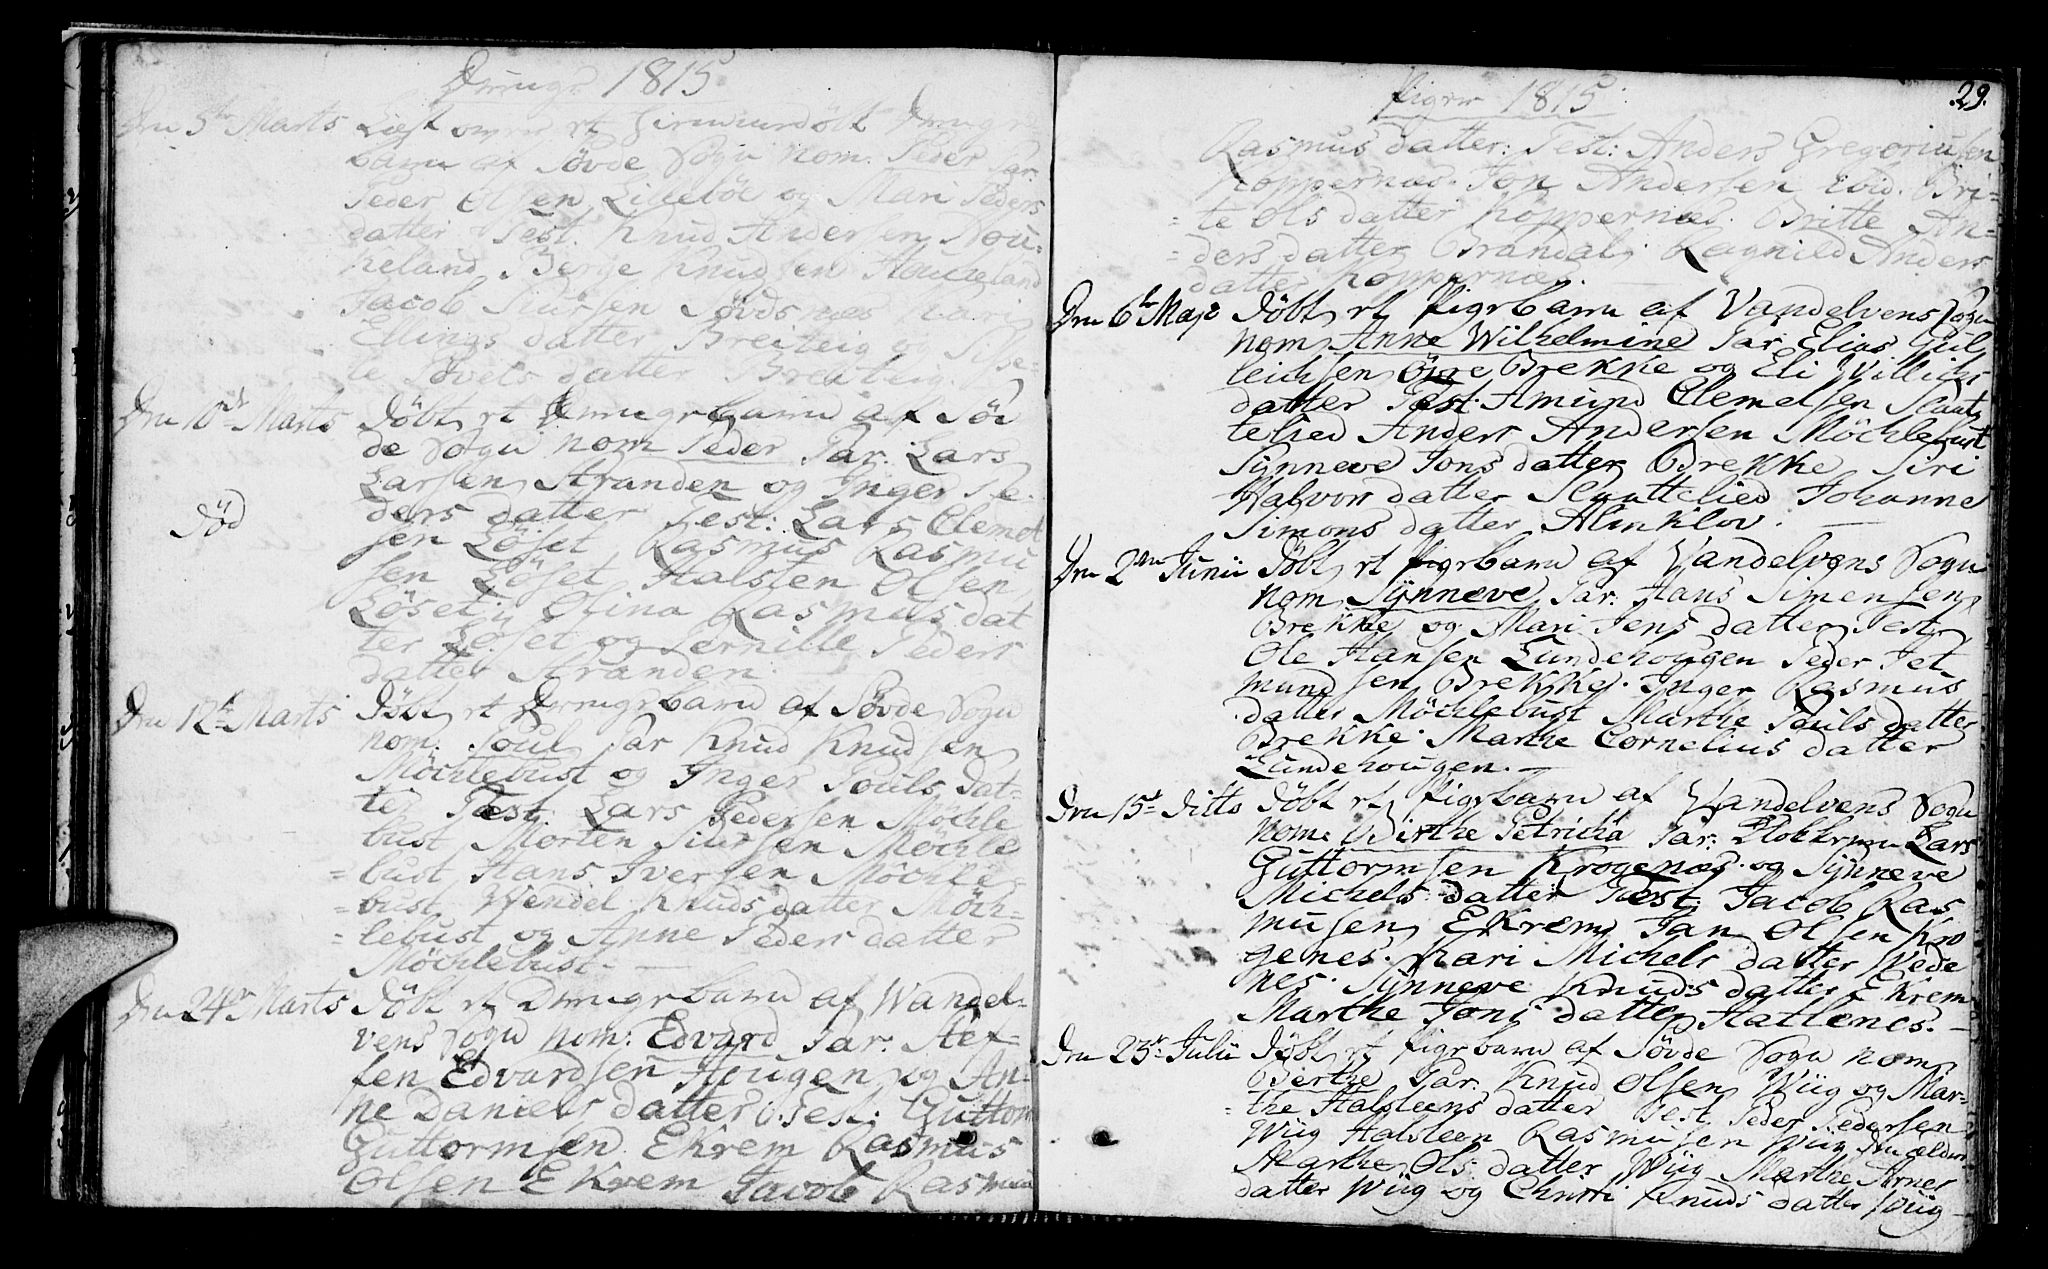 Drenge 1815
Den 5te Marts Læst over et hiemmedöbt Drenge
barn af Sövde Sogn nom. Peder Par.
Peder Olsen Lilleböe og Mari Peders
datter Test. Knud Andersen Hou-
keland Berge Knudsen Houkeland
Jacob Siursen Sövdsnæs Kari
Ellings datter Breiteig og Sibe-
le Povels datter Breiteig.
Den 10de Marts Döbt et Drengebarn af Söv
de Sogn nom Peder Par. Lars
Larsen Aranden og Inger Pe-
Död
ders datter Test: Lars Clemet
sen Löset Rasmus Rasmu
sen Löset Halsten Olsen
Löset Olina Rasmus dat
ter Löset og Pernille Peders
datter Aranden.
Den 12te Marts Döbt et Drengebarn af Sövde Sogn
nom. Poul Par Knud Knudsen
Möchlebust og Inger Pouls dat-
ter Test. Lars Pedersen Möchle
bust Morten Siursen Möchle
= bust Hans Iversen Möchle-
= bust Wendel Knuds datter Möch-
= lebust og Anne Peders datter
Möchlebust. —
Den 24de Marts Döbt et Drengebarn af Wandel-
vens Sogn nom: Edvard Par. Stef-
fen Edvardsen Hougen og An-
ne Daniels datter Test: Guttorm
Guttormsen Ekrem Rasmus
Olsen Ekrem Jacob Rasmus
29.
Piger 1815
Rasmus datter: Test: Anders Gregoriusen
Koppernæs. Jon Andersen Eid. Bri-
= te Ols datter Koppernæs. Britte An-
= ders datter Brandal. Ragnild Anders
datter Koppernæs
Den 6te Maje Döbt et Pigebarn af Vandelvens Sogn
nom Anne Wilhelmine Par. Elias Gul
leichsen Öyre Brekke og Eli Villichs
datter Test. Amund Clemetsen Slaat
telied Anders Andersen Möchlebust
Synneve Jons datter Brekke Siri
Halvors datter Slaattelied Johanne
Simons datter Alnklov. —
Den 2den Junii Döbt et Pigebarn af Vandelvens Sogn
nom Synneve Par. Hans Simensen
Brekke og Mari Jens datter Test
Ole Hansen Lundehougen Peder Jet
mundsen Brekke. Inger Rasmus
datter Möchlebust Marthe Pouls datter
Brekke. Marthe Cornelius datter
Lundehougen. —
Den 15de Ditto Döbt et Pigebarn af Vandelvens Sogn
nom. Birthe Petricha Par: Klokkeren Lars
Guttormsen Krogenæs. og Synneve
Michels datter Test. Jacob Ras
musen Ekrem Jan Olsen Kro
genes. Kari Michels datter Vede
nes. Synneve Knuds datter Ekrem
Marthe Jons datter Hatlenes. —
Den 23de Julii Döbt et Pigebarn af Sövde Sogn nom
Berthe Par. Knud Olsen Wiig og Mar-
= the Halsteens datter Test Peder Pedersen
Wiig Halsteen Rasmusen Wiig den ældre
Marthe Ols datter Wiig Marthe Arnes
datter Wiig og Christi Knuds datter Wiig